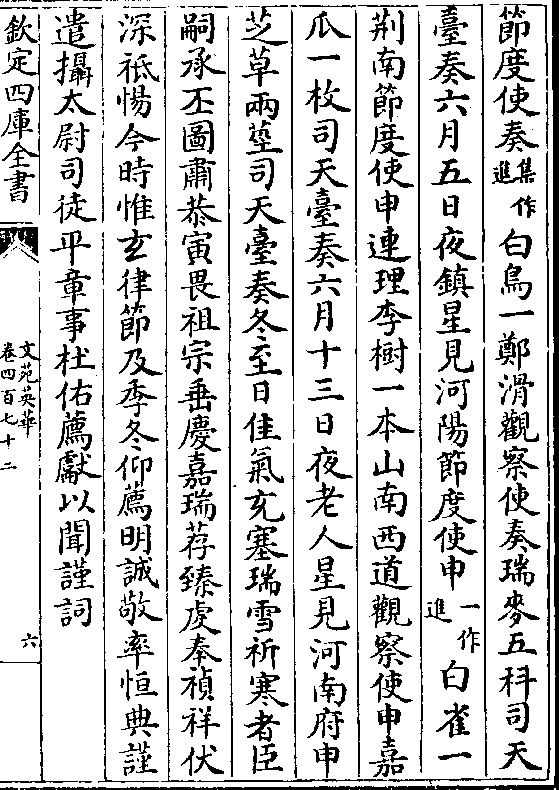 節度使奏集作進白烏一鄭滑觀察使奏瑞麥五科司天
臺奏六月五日夜鎮星見河陽節度使申一作進白雀一
荆南節度使申連理李樹一本山南西道觀察使申嘉
瓜一枚司天臺奏六月十三日夜老人星見河南府申
芝草兩莖司天臺奏冬至日佳氣充塞瑞雪祈寒者臣
嗣承丕圖肅恭寅畏祖宗垂慶嘉瑞荐臻虔奉禎祥伏
深祗惕今時惟玄律節及季冬仰薦明誠敬率恒典謹
遣攝太尉司徒平章事杜佑薦獻以聞謹詞
欽定四庫全書
文苑英華
卷四百七十二
六